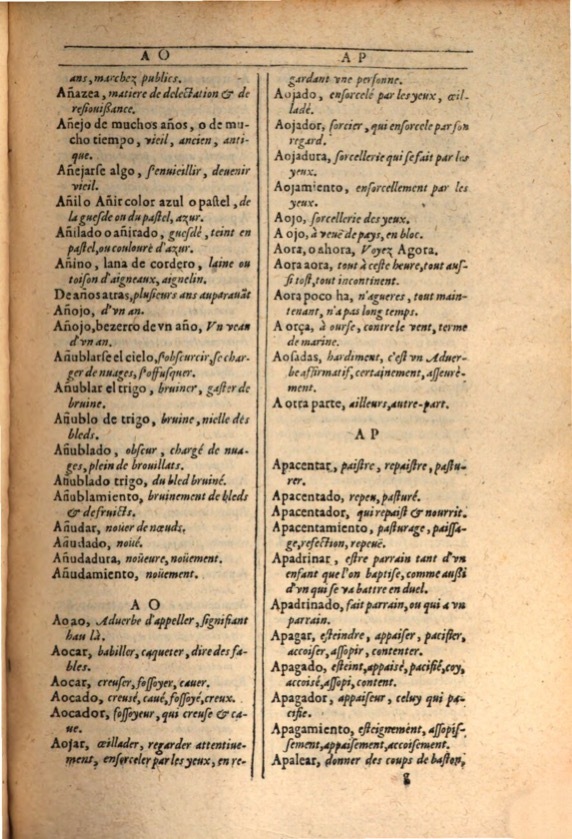 A O
ans, marchez publics.
Añazea, matiere de delectation & de
resiouißance.
Añejo de muchos años, o de mu-
cho tiempo, vieil, ancien, anti-
que.
Añejarse algo, s'enuieillir, deuenir
vieil.
Añil o Añir color azul o pastel, de
la guesde ou du pastel, azur.
Añilado o añirado, guesdé, teint en
pastel, ou coulouré d'azur.
Añino, lana de cordero, laine ou
toison d'aigneaux, aignelin.
De años atras, plusieurs ans auparauāt
Añojo, d'vn an.
Añojo, bezerro de vn año, Vn veau
d'vn an.
Añublarse el cielo, s'obscurcir, se char
ger de nuages, s'offusquer.
Añublar el trigo, bruiner, gaster de
bruine.
Añublo de trigo, bruine, nielle dès
bleds.
Añublado, obscur, chargé de nua-
ges, plein de brouillats.
Añublado trigo, du bled bruiné.
Añublamiento, bruinement de bleds
& de fruicts.
Añudar, noüer de nœuds.
Añudado, noüé.
Añudadura, noüeure, noüement.
Añudamiento, noüement.
A O
Aoao, Aduerbe d'appeller, signifiant
hau là.
Aocar, babiller, caqueter, dire des fa-
bles.
Aocar, creuser, fossoyer, cauer.
Aocado, creusé, caué, fossoyé, creux.
Aocador, fossoyeur, qui creuse & ca-
ue.
Aojar, œillader, regarder attentiue-
ment, ensorceler par les yeux, en re-
A P
gardant vne personne.
Aojado, ensorcelé par les yeux, œil-
ladé.
Aojador, sorcier, qui ensorcele par son
regard.
Aojadura, sorcellerie qui se fait par les
yeux.
Aojamiento, ensorcellement par les
yeux.
Aojo, sorcellerie des yeux.
A ojo, à veuë de pays, en bloc.
Aora, o ahora, Voyez Agora.
Aora aora, tout à ceste heure, tout aus-
si tost, tout incontinent.
Aora poco ha, n'agueres, tout main-
tenant, n'a pas long temps.
A orça, à ourse, contre le vent, terme
de marine.
Aosadas, hardiment, c'est vn Aduer-
be affirmatif, certainement, asseuré-
ment.
A otra parte, ailleurs, autre-part.
A P
Apacentar, paistre, repaistre, pastu-
rer.
Apacentado, repeu, pasturé.
Apacentador, qui repaist & nourrit.
Apacentamiento, pasturage, paissa-
ge, refection, repeuë.
Apadrinar, estre parrain tant d'vn
enfant que l'on baptise, comme außi
d'vn qui se va battre en duel.
Apadrinado, fait parrain, ou qui a vn
parrain.
Apagar, esteindre, appaiser, pacifier,
accoiser, assopir, contenter.
Apagado, esteint, appaisé, pacifié, coy,
accoisé, assopi, content.
Apagador, appaiseur, celuy qui pa-
cifie.
Apagamiento, esteignement, assopis-
sement, appaisement, accoisement.
Apalear, donner des coups de baston,
g